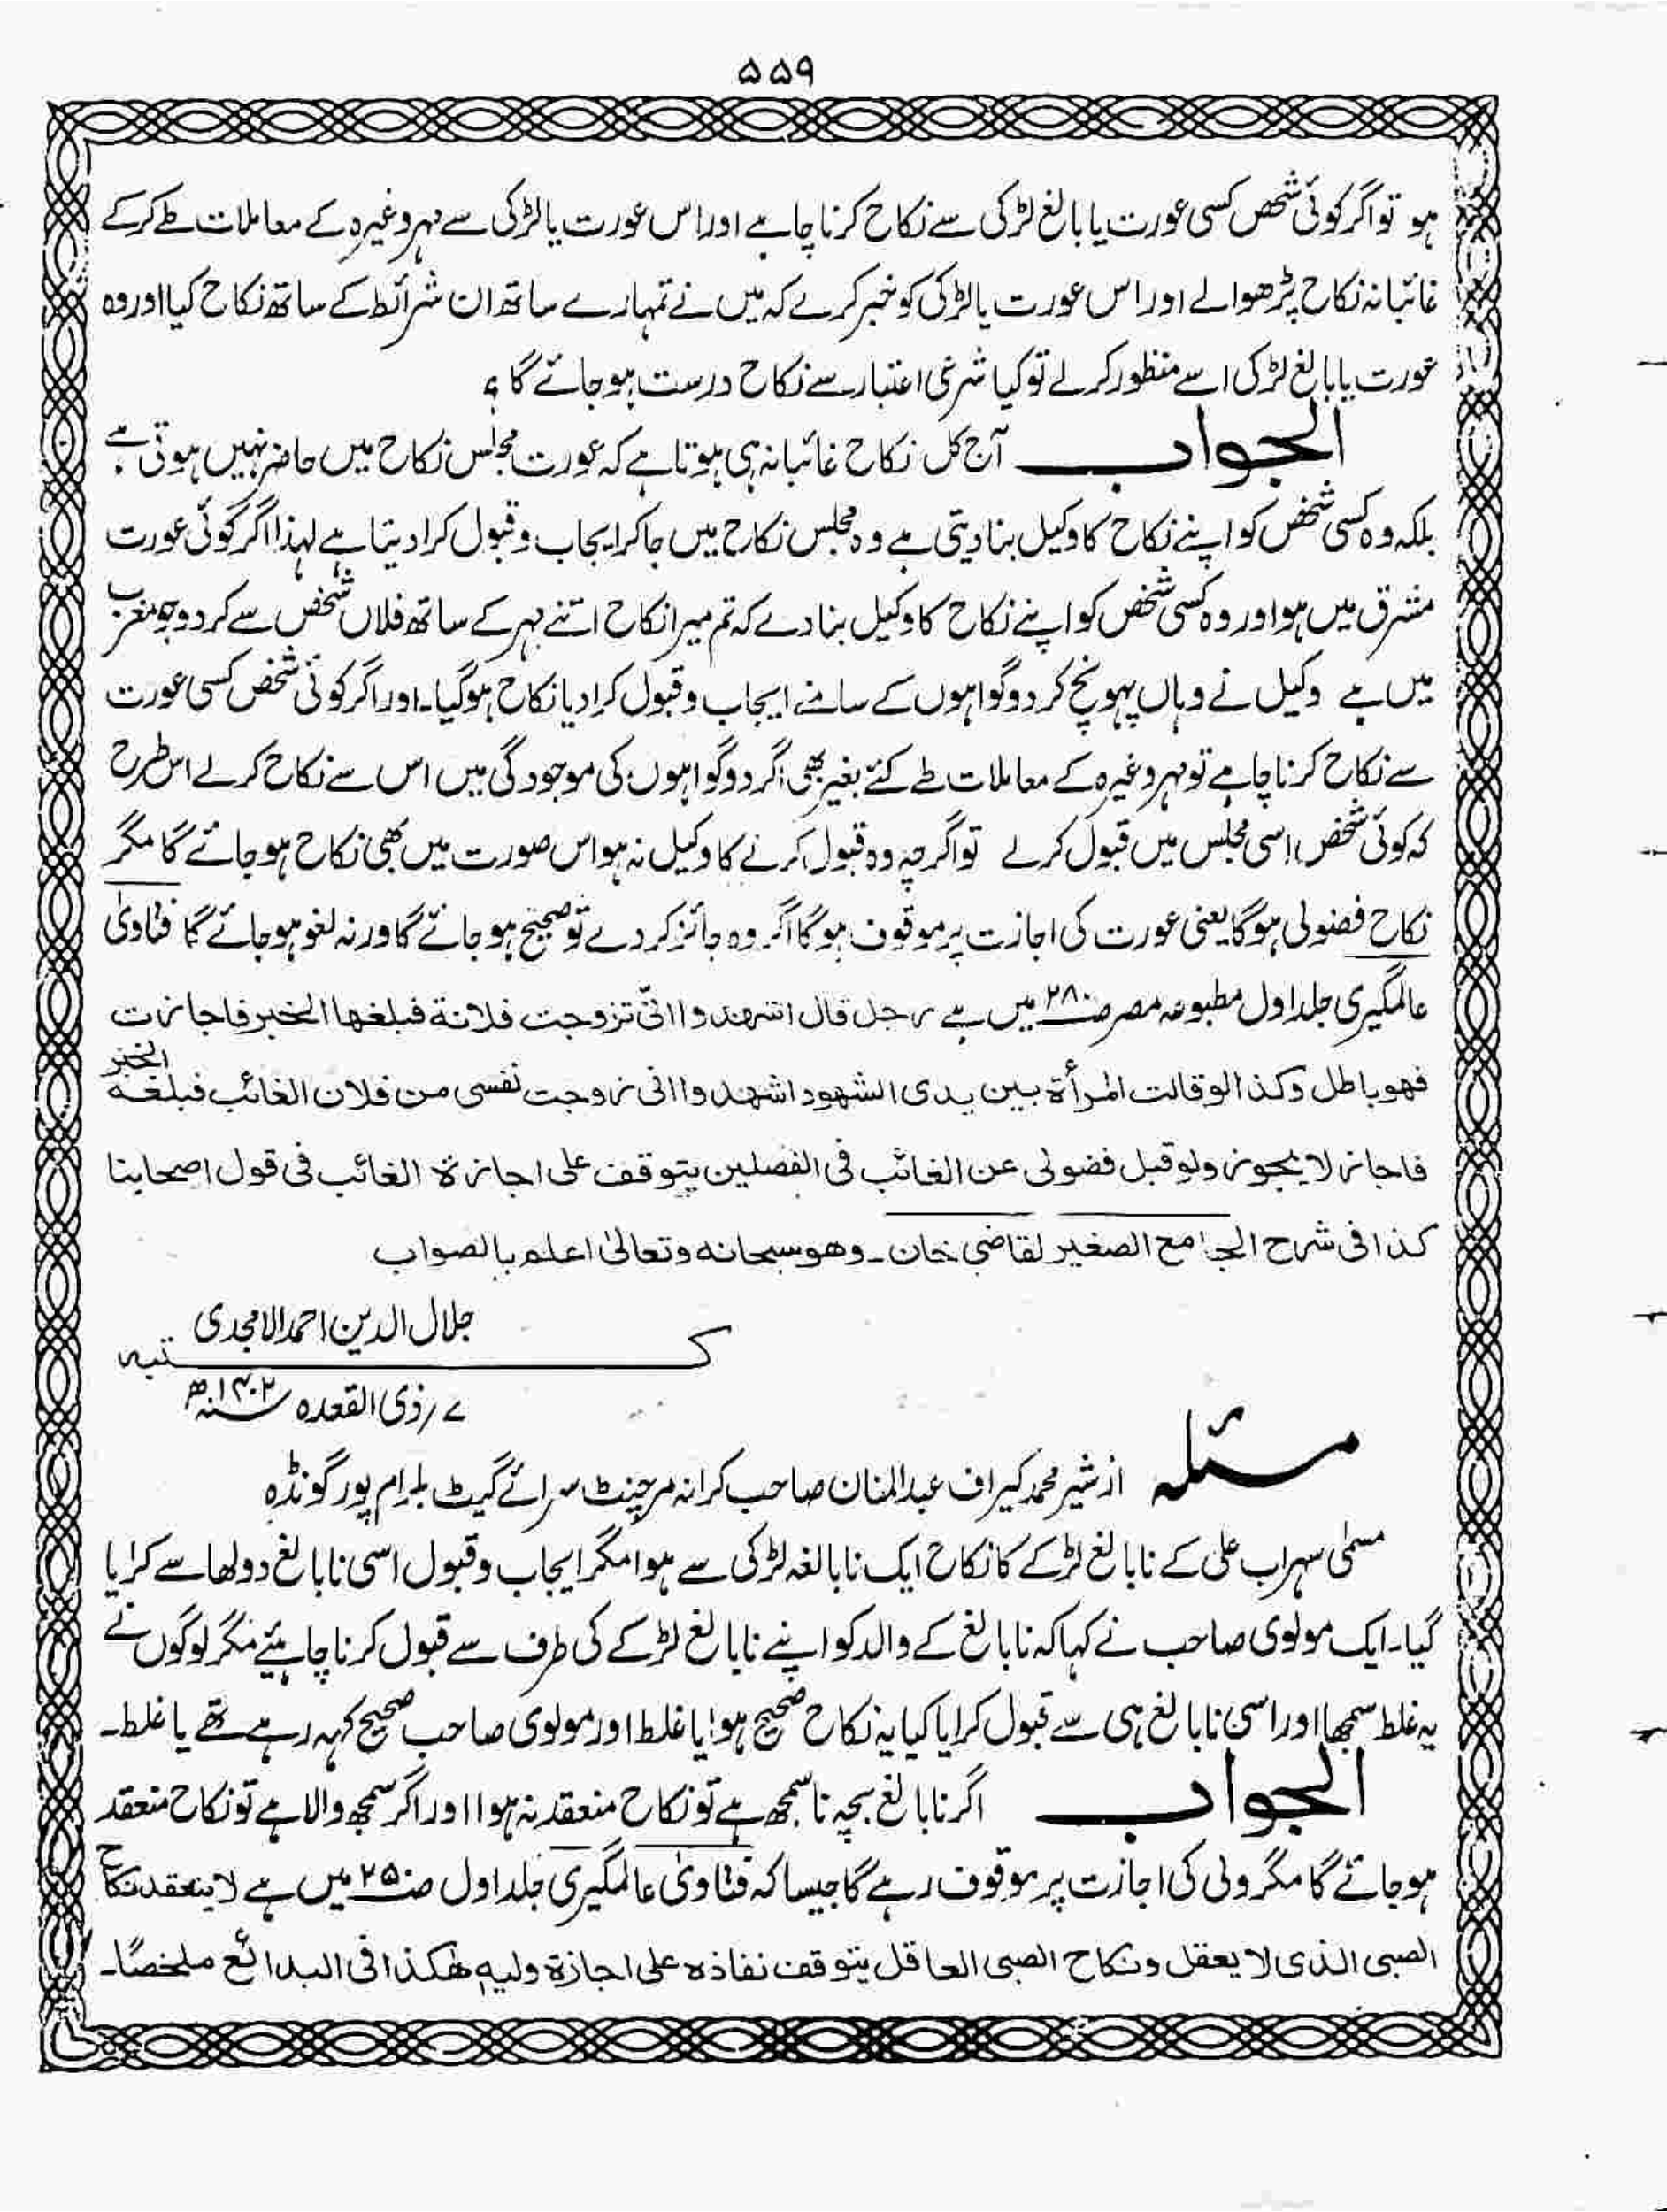 ۵۵۹
ہو تو اگر کوئی شخص کسی عورت یا بالغ لڑکی سے نکاح کرنا چاہے اور اس عورت یا لڑکی سے مہر وغیرہ کے معاملات طے کرکے
غائبانہ نکاح پڑھوالے اور اس عورت یا لڑکی کو خبر کرے کہ میں نے تمہارے ساتھ ان شرائط کے ساتھ نکاح کیا اور وہ
عورت یا بالغ لڑکی اسے منظور کرلے تو کیا شرعی اعتبار سے نکاح درست ہوجائے گا؟
الجواب آج کل نکاح غائبانہ ہی ہوتا ہے کہ عورت مجلس نکاح میں حاضر نہیں ہوتی ہے
بلکہ وہ کسی شخص کو اپنے نکاح کا وکیل بنادیتی ہے وہ مجلس نکاح میں جاکر ایجاب و قبول کرادیتا ہے لہذا اگر کوئی عورت
مشرق میں ہو اور وہ کسی شخص کو اپنے نکاح کا وکیل بنادے کہ تم میرا نکاح اتنے مہر کے ساتھ فلاں شخص سے کردو جو مغرب
میں ہے وکیل نے وہاں پہونچ کر دو گواہوں کے سامنے ایجاب و قبول کرادیا نکاح ہوگیا۔ اور اگر کوئی شخص کسی عورت
سے نکاح کرنا چاہے تو مہر وغیرہ کے معاملات طے کئے بغیر بھی اگر دو گواہوں کی موجودگی میں اس سے نکاح کرلے اس طرح
کہ کوئی شخص اسی مجلس میں قبول کرلے تو اگرچہ وہ قبول کرنے کا وکیل نہ ہو اس صورت میں بھی نکاح ہوجائے گا مگر
نکاح فضولی ہوگا یعنی عورت کی اجازت پر موقوف ہوگا اگر وہ جائز کردے تو صحیح ہوجائے گا ورنہ لغو ہوجائے گا فتاویٰ
عالمگیری جلد اول مطبوعہ مصر صـ۲۸۰ میں ہے رجل قال اشهدوا انی تزوجت فلانة فبلغها الخبر فاجازت
فهو باطل وكذا لو قالت المرأة بين يدى الشهود اشهدوا انی زوجت نفسی من فلان الغائب فبلغه الخبر
فاجاز لا يجوز ولو قبل فضولی عن الغائب فی الفصلين يتوقف علی اجازة الغائب فی قول اصحابنا
كذا فی شرح الجامع الصغير لقاضی خان۔ وهو سبحانه وتعالیٰ اعلم بالصواب
جلال الدین احمد الامجدی
کتبہ
۷؍ ذی القعدہ سنہ ۱۴۰۲ھ
مسئلہ از شیر محمد کیراف عبدالمنان صاحب کرانہ مرچنٹ سرائے گیٹ بلرام پور گونڈہ
مسمی سہراب علی کے نابالغ لڑکے کا نکاح ایک نابالغہ لڑکی سے ہوا مگر ایجاب و قبول اسی نابالغ دولھا سے کرایا
گیا۔ ایک مولوی صاحب نے کہا کہ نابالغ کے والد کو اپنے نابالغ لڑکے کی طرف سے قبول کرنا چاہیئے مگر لوگوں نے
یہ غلط سمجھا اور اسی نابالغ ہی سے قبول کرایا کیا یہ نکاح صحیح ہوا یا غلط اور مولوی صاحب صحیح کہہ رہے تھے یا غلط۔
الجواب اگر نابالغ بچہ ناسمجھ ہے تو نکاح منعقد نہ ہوا اور اگر سمجھ والا ہے تو نکاح منعقد
ہوجائے گا مگر ولی کی اجازت پر موقوف رہے گا جیسا کہ فتاویٰ عالمگیری جلد اول صـ۲۵۰ میں ہے لا ينعقد نكاح
الصبی الذی لا يعقل ونكاح الصبی العاقل يتوقف نفاذه علی اجازة وليه هٰكذا فی البدائع ملخصًا۔